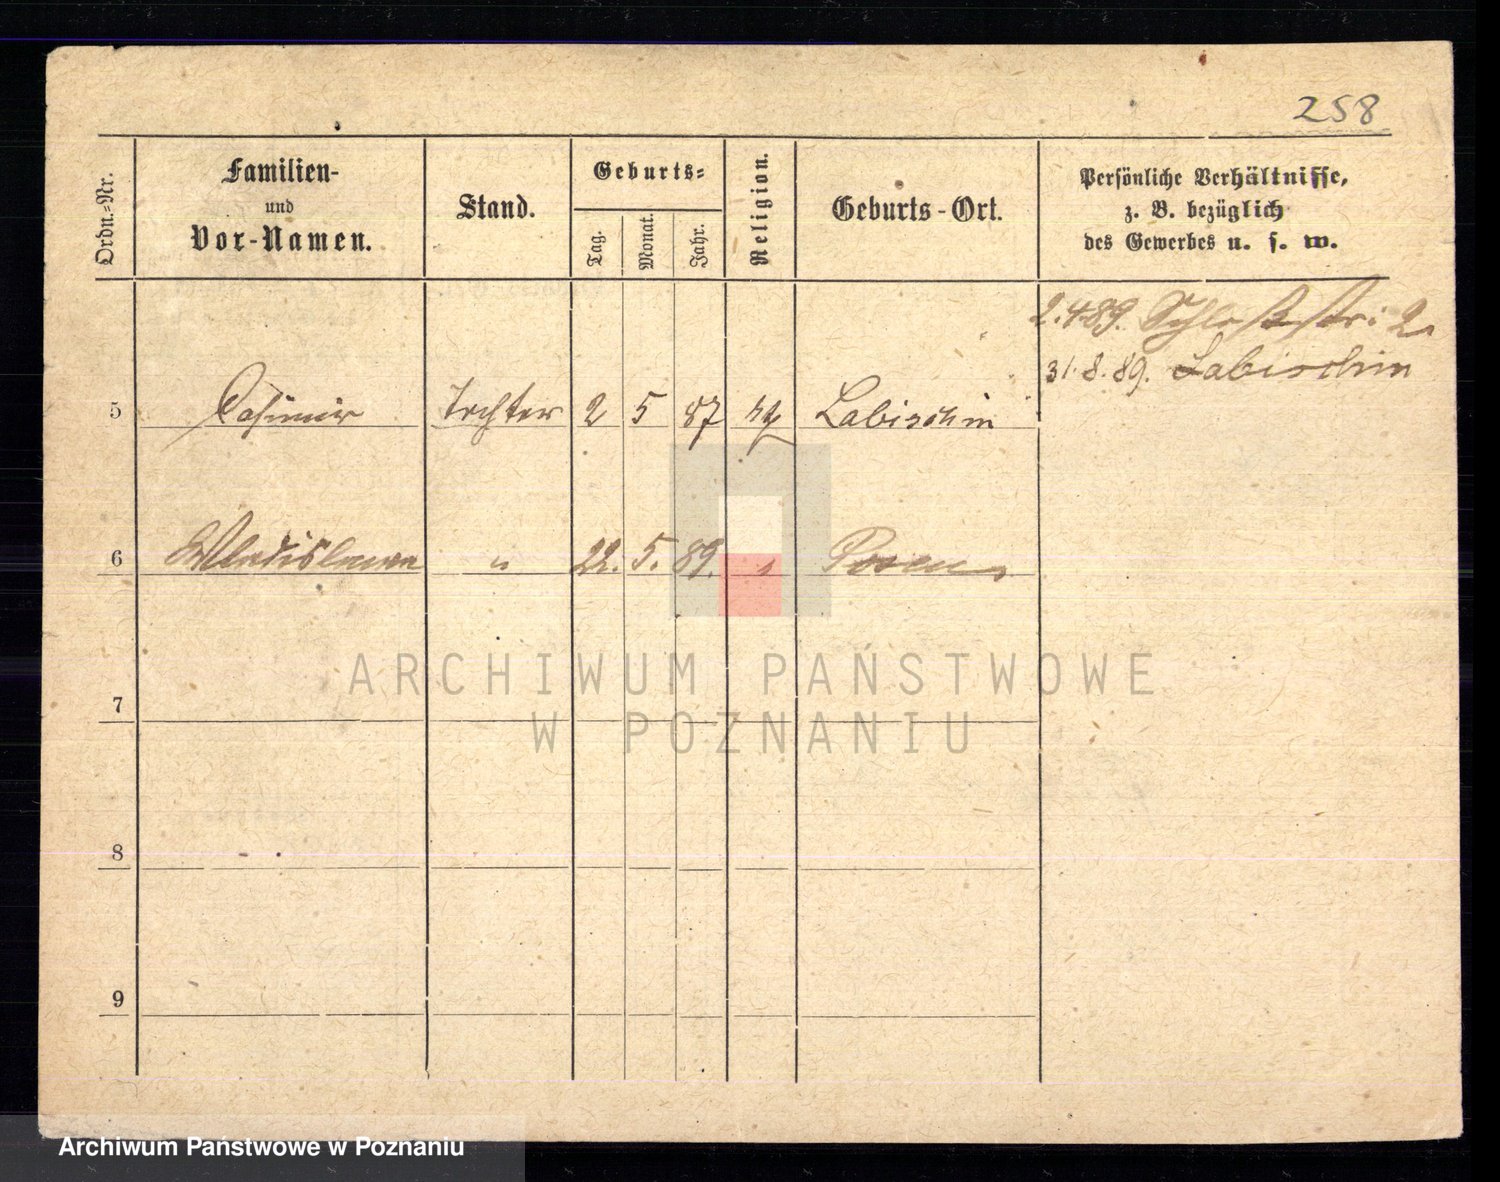 258
Ordn.-Nr.
Familien-
und
Vor-Namen.
Stand.
Geburts-
Tag.
Monat.
Jahr.
Religion.
Geburts-Ort.
Persönliche Verhältnisse,
z. B. bezüglich
des Gewerbes u. s. w.
2.4.89. Schloßstr. 2
31.8.89. Labischin
5 Casimir Tochter 2 5 87 Labischin
6 " 22. 5. 89. " Posen
7
8
9
ARCHIWUM PAŃSTWOWE
W POZNANIU
Archiwum Państwowe w Poznaniu